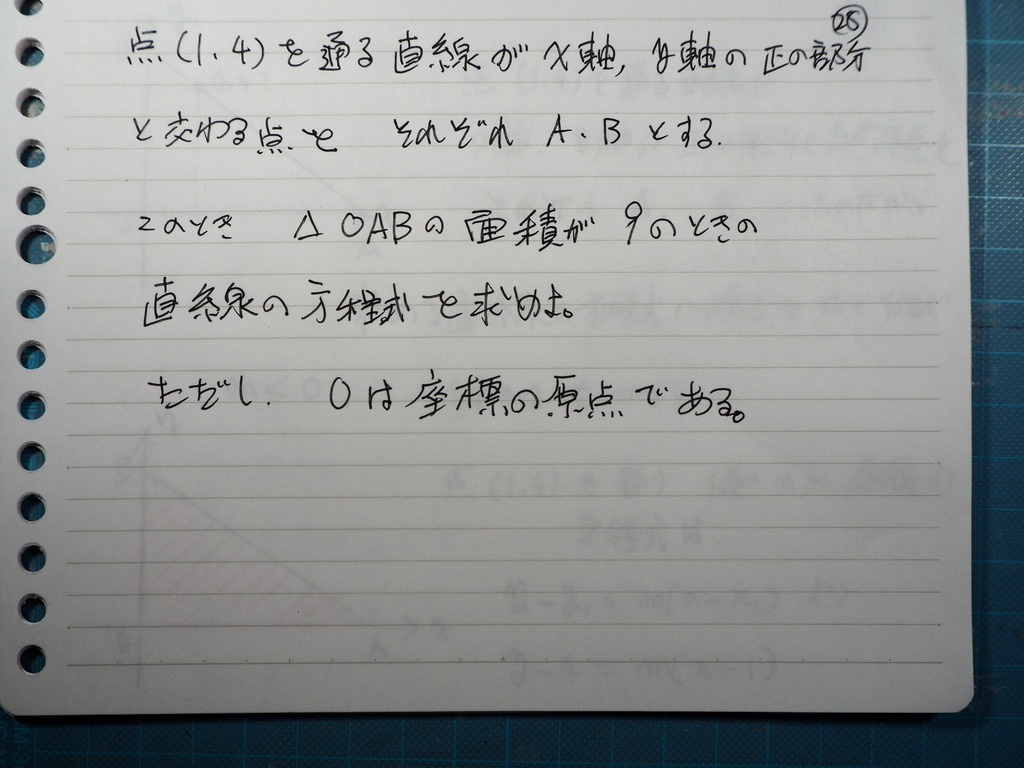 ㉘
点(1.4)を通る直線がx軸,y軸の正の部分
と交わる点を それぞれ A.B とする.
このとき △OABの面積が9のときの
直線の方程式を求めよ。
ただし. Oは座標の原点である。